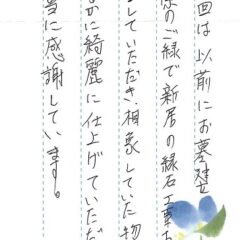 回は以前にお墓, 
のご縁で新居の縁石工事
していただき、想象していた物
かに綺麗に仕上げていただ
当に感謝しています。